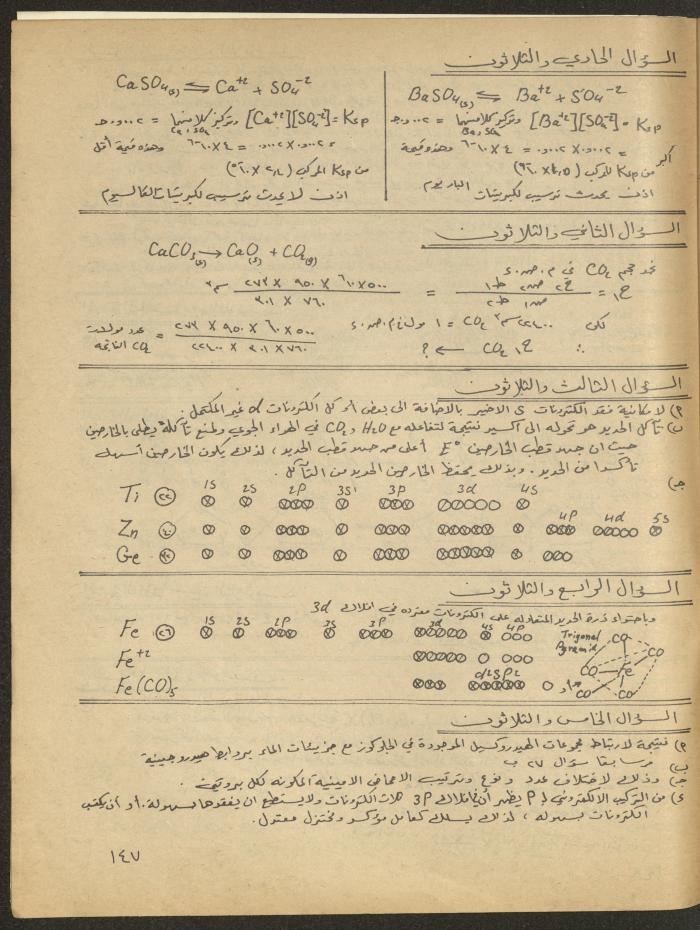 السؤال الحادي والثلاثون
BaSO₄(s) ⇌ Ba⁺² + SO₄⁻²
Ksp = [Ba⁺²][SO₄⁻²] وتركيز كلا منهما = ٠,٠٠٢
Ba, SO₄
= ٠,٠٠٢ × ٠,٠٠٢ = ٤ × ١٠⁻٦ وهذه قيمة أكبر
من Ksp للمركب
اذن يحدث ترسيب لكبريتات الباريوم
CaSO₄(s) ⇌ Ca⁺² + SO₄⁻²
Ksp = [Ca⁺²][SO₄⁻²] وتركيز كلا منهما = ٠,٠٠٢
Ca, SO₄
= ٠,٠٠٢ × ٠,٠٠٢ = ٤ × ١٠⁻٦ وهذه قيمة أقل
من Ksp المركب (٢,٤ × ١٠⁻٥)
اذن لا يحدث ترسيب لكبريتات الكالسيوم
السؤال الثاني والثلاثون
CaCO₃(s) → CaO(s) + CO₂(g)
نجد حجم CO₂ في م.ض.د
ح١ = ح٢ ض٢ ط١ / ض١ ط٢ = ٥٠٠ × ١٠⁶ × ٩٥٠ × ٢٧٣ / ٧٦٠ × ٣٠١ سم٣
لكن ٢٢٤٠٠ سم٣ CO₂ = ١ مول في م.ض.د
∴ ح١ CO₂ ← ؟
عدد مولات CO₂ الناتجة = ٥٠٠ × ١٠⁶ × ٩٥٠ × ٢٧٣ / ٧٦٠ × ٣٠١ × ٢٢٤٠٠
السؤال الثالث والثلاثون
أ) لامكانية فقد الكترونات s الاخير بالاضافة الى بعض أو كل الكترونات d غير المكتمل.
ب) تآكل الحديد هو تحوله الى اكسيد نتيجة لتفاعله مع H₂O و CO₂ في الهواء الجوي ولمنع تآكله يطلى بالخارصين
حيث ان جهد قطب الخارصين E° أعلى من جهد قطب الحديد، لذلك يكون الخارصين أسهل
تأكسدا من الحديد. وبذلك يحفظ الخارصين الحديد من التآكل.
جـ)
1S 2S 2P 3S 3P 3d 4S
Ti ٢٢
4P 4d 5S
Zn
Ge
السؤال الرابع والثلاثون
وباحتواء ذرة الحديد المتعادلة على الكترونات مفردة في افلاك 3d
1S 2S 2P 3S 3P 3d 4S 4P
Fe ٢٦
Fe⁺²
Fe(CO)₅
Trigonal
Pyramid
CO
CO
CO Fe
CO CO
السؤال الخامس والثلاثون
أ) نتيجة لارتباط مجموعات الهيدروكسيل الموجودة في الجلوكوز مع جزيئات الماء بروابط هيدروجينية
ب) مر سابقا سؤال ٢٧ ب
جـ) وذلك لاختلاف عدد ونوع وترتيب الاحماض الامينية المكونه لكل بروتين.
د) من التركيب الالكتروني لـ P يظهر أن في افلاك 3P ثلاث الكترونات ولا يستطيع ان يفقدها بسهولة. أو أن يكتسب
الكترونات بسهوله، لذلك يسلك كعامل مؤكسد ومختزل معتدل.
١٤٧